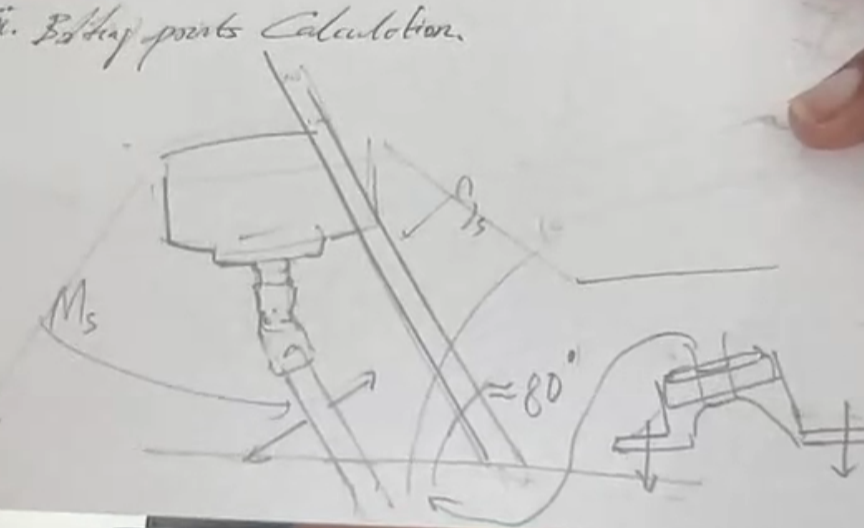 ii. Bolting points Calculation.
Ms
≈80°